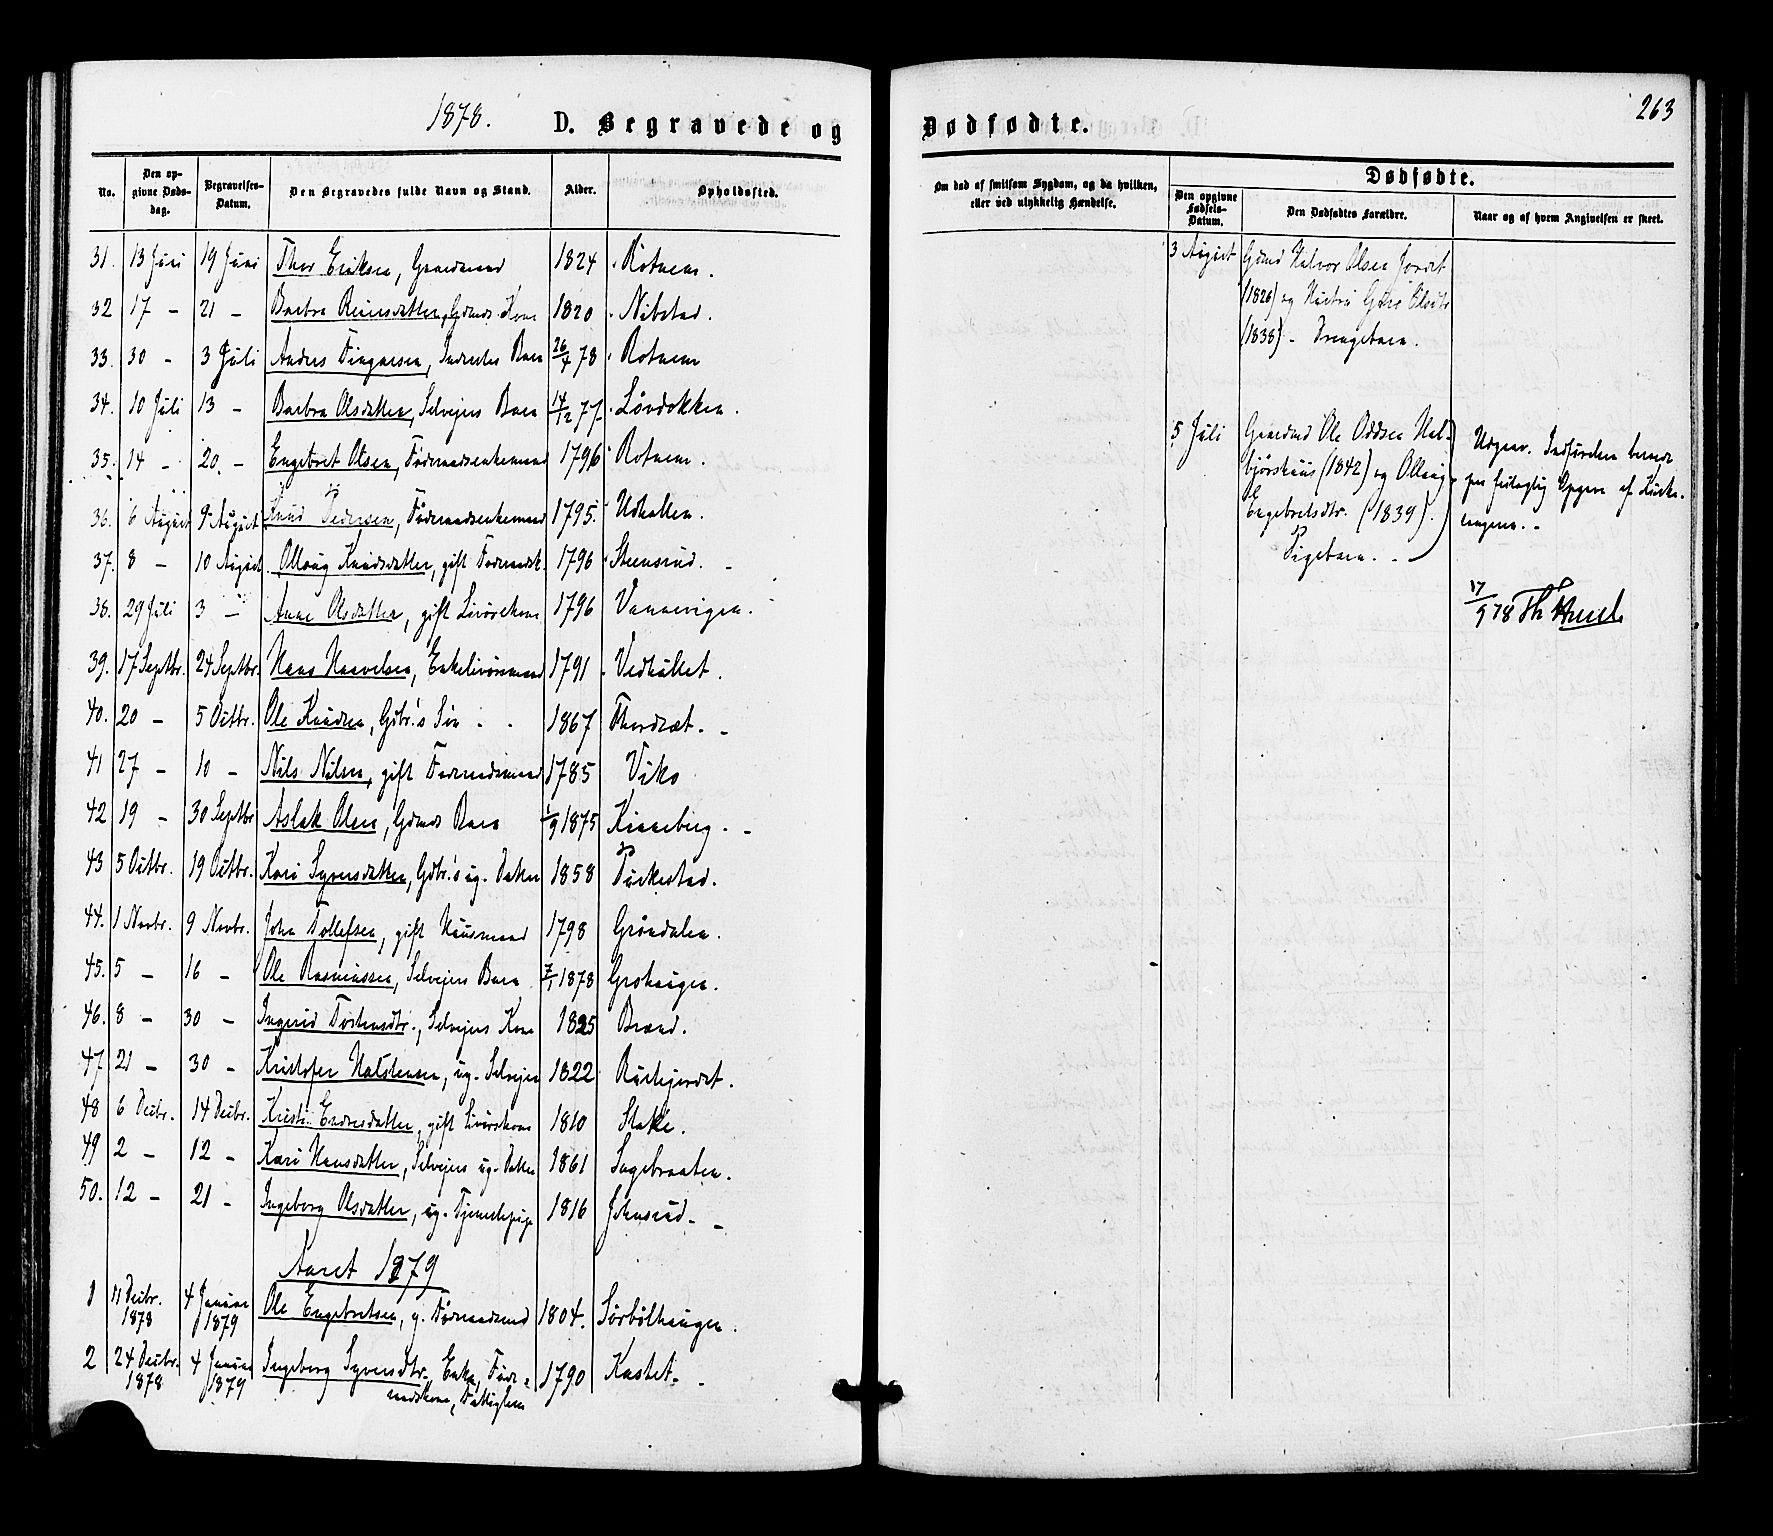 1878. D. Begravede og Dødfødte. 263
No. Den opgivne Døds-dag. Begravelses-Datum. Den Begravedes fulde Navn og Stand. Alder. Opholdssted.
Om død af smitsom Sygdom, og da hvilken, eller ved ulykkelig Hændelse.
Dødfødte.
Den opgivne Fødsels-Datum. Den Dødfødtes Forældre. Naar og af hvem Angivelsen er skeet.
31. 13 Juni 19 Juni Thor Eriksen, Gaardmand 1824 Rotnem.
32 17 - 21 - Barbra Reiersdatter, Gdmds Kone 1820 Nibstad.
33. 30 - 3 Juli Anders Fingarsen, Inderstes Barn 26/4 78 Rotnem
34. 10 Juli 13 - Barbra Olsdatter, Selvejers Barn 14/12 77 Løvdokken.
35. 14 - 20. - Engebret Olsen, Føderaadsenkemand 1796 Rotnem.
36. 6 August 9 August Knud Pedersen, Føderaadsenkemand 1795. Udhallen.
37. 8 - 10 August Ollaug Knudsdatter, gift Føderaadsk. 1796 Steensrud. -
38. 29 Juli 3 - Anne Olsdatter, gift Livørekone 1796 Vannevigen.
39. 17 Septbr. 24 Septbr. Hans Haavelsen, Enkelivøremand 1791 Vedhullet.
40. 20 - 5 Octbr. Ole Knudsen, Gdbr.'s Søn - - 1867 Thordræt. -
41 27 - 10 - Nils Nilsen, gift Føderaadsmand 1785 Viko
42 19 - 30 Septbr Aslak Olsen, Gdmds Barn 1/9 1875 Kinneberg. -
43 5 Octbr. 19 Octbr. Kari Syversdatter, Gdbr.'s ug. Datter 1858 Turkestad.
44. 1 Novbr. 9 Novbr. John Tollefsen, gift Huusmand 1798 Grøndalen.
45. 5 - 16 - Ole Rasmussen, Selvejers Barn 7/1 1878 Grohaugen.
46. 8 - 30 - Ingerid Tostensdtr., Selvejers Kone 1825 Brænd.
47. 21 - 30 - Kristofer Halstensen, ug. Selvejer 1822 Rustegjordet.
48 6 Decbr. 14 Decbr. Kristi Endresdatter, gift Livørekone 1810 Stake.
49 2 - 12 - Kari Hansdatter, Selvejers ug. Datter 1861 Sagebraaten.
50. 12 - 21 - Ingeborg Olsdatter, ug. Tjenestepige 1816 Johnsrud. -
Aaret 1879
1 11 Decbr. 1878 4 Januar 1879 Ole Engebretsen, g. Føderaadsmd 1804. Sørbølhaugen.
2 24 Decbr. 1878 4 Januar 1879 Ingeborg Syversdtr., Enke, Føderaadskone, Fattiglem 1790 Kastet. -
3 August Gdmd Halvor Olsen Jordet
(1826) og Hustru Guro Olsdtr
(1838) - Drengebarn.
5 Juli Gaardmd Ole Oddsen Hal-
bjørshuus (1842) og Ollaug
Engebretsdtr. (1839).
Pigebarn. -
Udgaar. Indførelsen beroede
paa feilagtig Opgave af Kirke-
sangeren. -
17/9 78